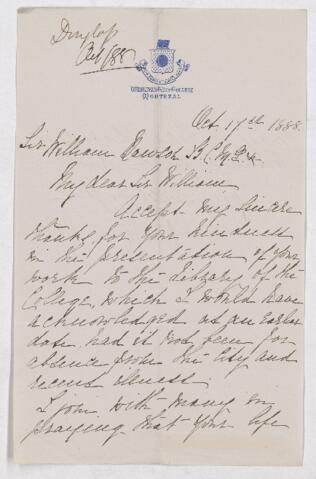 Dunlop
Oct/88
College
Montreal
Oct. 17th 1888.
Sir William Dawson
My dear Sir William
Accept my sincere
thanks for your kindness
in the presentation of your
work to the Library of the
College, which I would have
acknowledged at an earlier
date had it not been for
absence from the City and
recent illness.
I join with many in
praying that your life